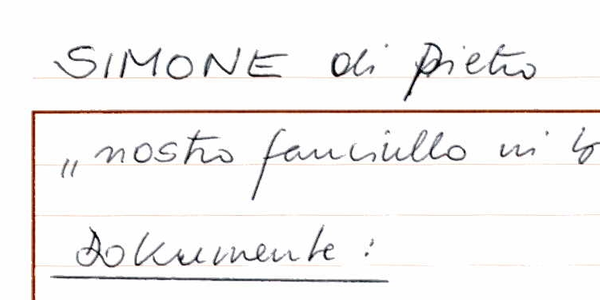 SIMONE di Pietro
„nostro fanciullo in
Dokumente: